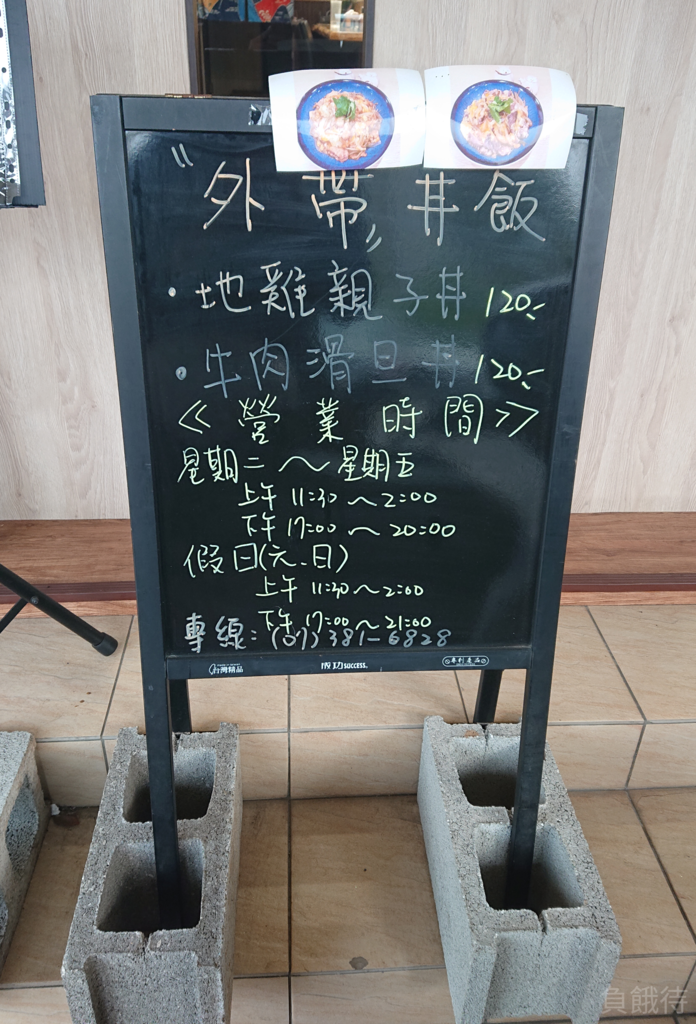 "外帶"丼飯
·地雞親子丼 120.-
·牛肉滑旦丼 120.-
<<營業時間>>
星期二～星期五
上午 11:30～2:00
下午 17:00～20:00
假日(六、日)
上午 11:30～2:00
下午 17:00～21:00
專線：(07)381-6828
台灣精品 成功SUCCESS. 專利產品
負餓待